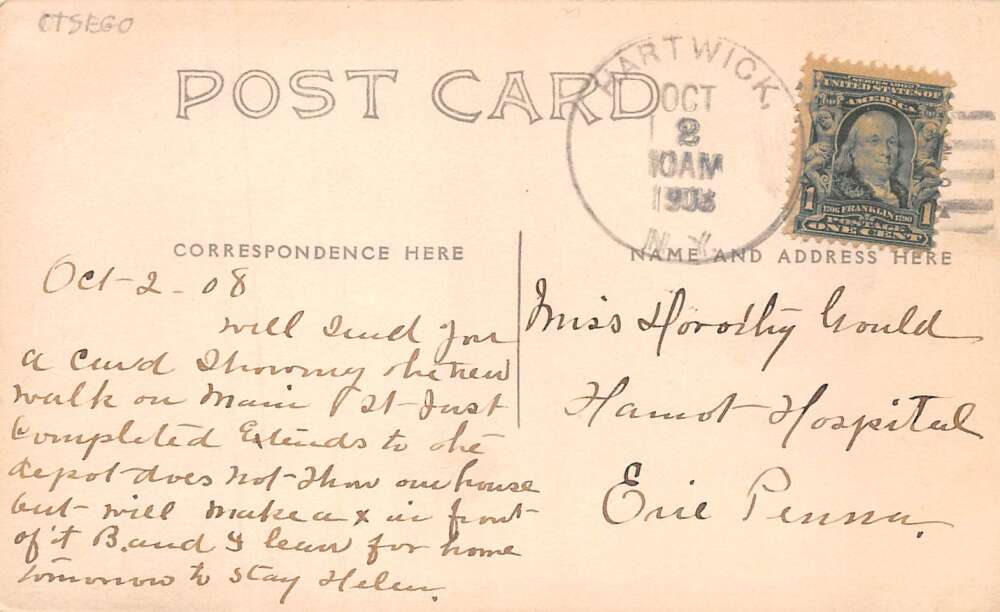 OTSEGO
POST CARD
HARTWICK.
OCT
2
10AM
1908
N.Y.
SERIES 1902
UNITED STATES OF
AMERICA
1 1
1706 FRANKLIN 1790
POSTAGE
ONE CENT
CORRESPONDENCE HERE
Oct-2-08
will send you
a card showing the new
walk on Main St-Just
Completed Extends to the
depot does not-show our house
but-will make a x in front-
of it B. and I leave for home
tomorrow to stay Helen.
NAME AND ADDRESS HERE
Miss Dorothy Gould
Hamot-Hospital
Erie Penna.